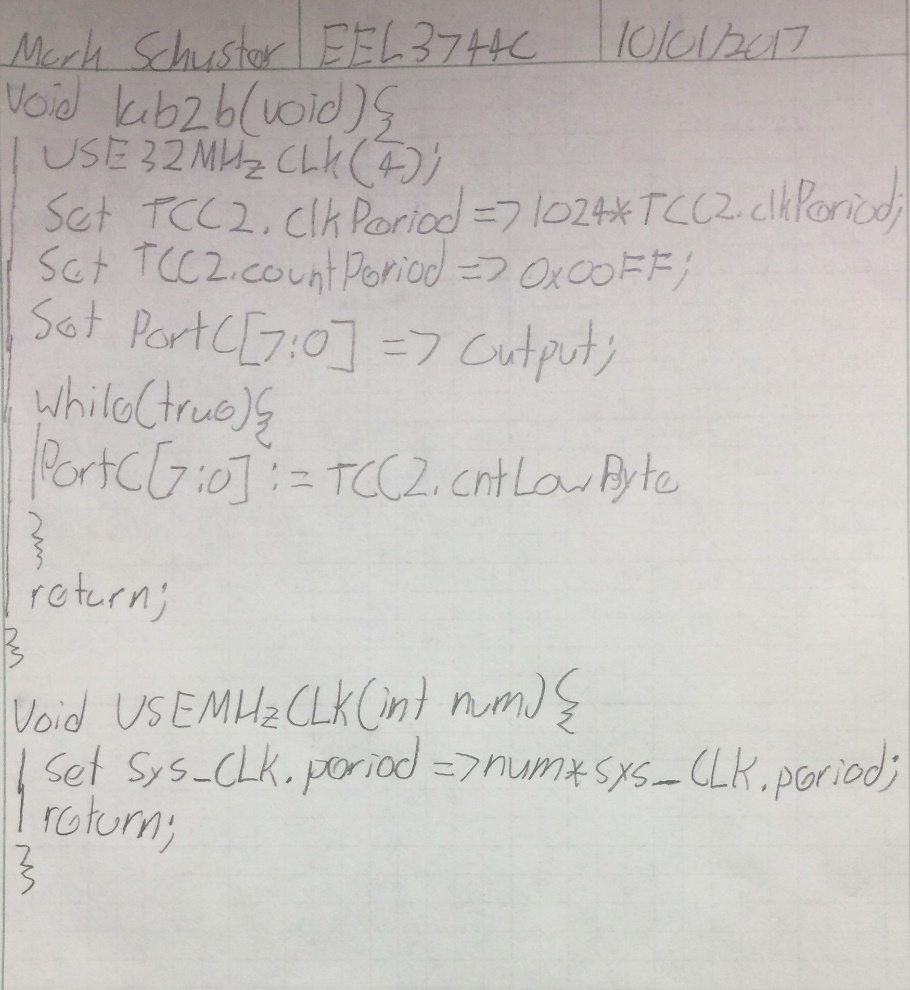 Mark Schuster EEL3744C 10/01/2017
Void lab2b(void){
USE32MHzCLK(4);
Set TCC2.clkPeriod => 1024*TCC2.clkPeriod;
Set TCC2.countPeriod => 0x00FF;
Set PortC[7:0] => Output;
While(true){
PortC[7:0] := TCC2.cntLowByte
}
return;
}
Void USEMHzCLK(int num){
Set Sys_CLK.period => num*sys_CLK.period;
return;
}